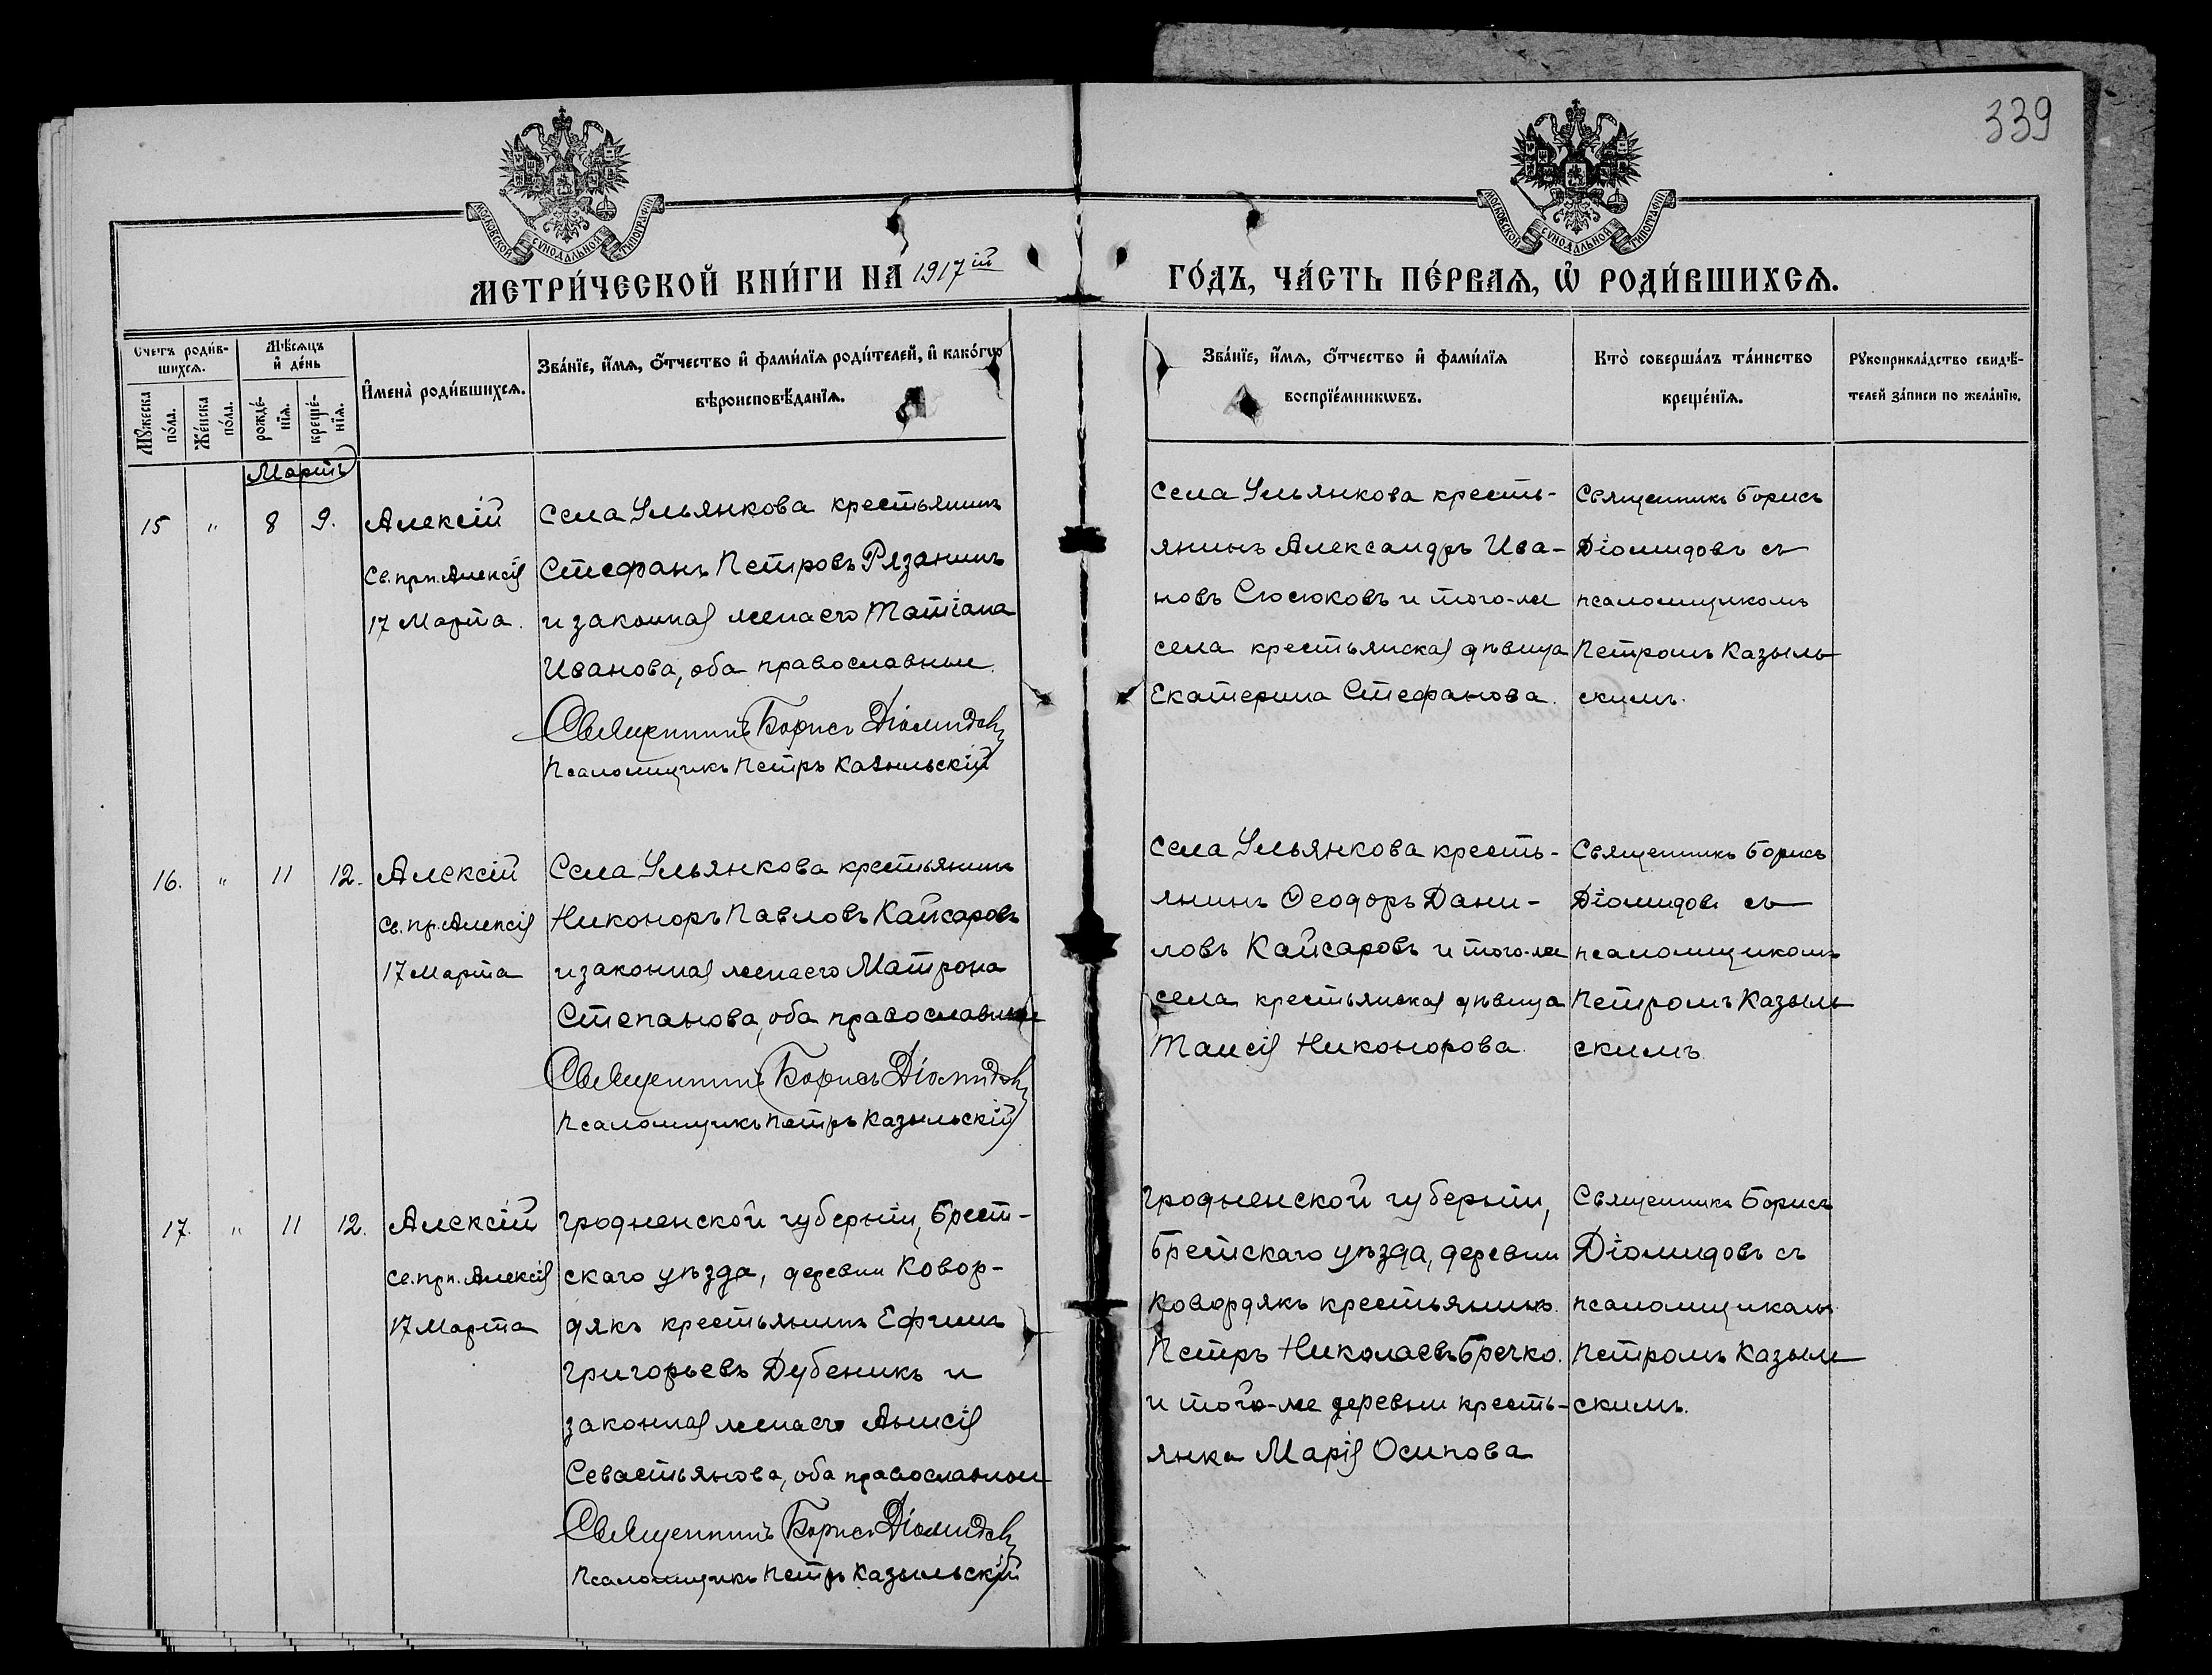 339
МОСКОВСКОЙ СУНОДАЛЬНОЙ ТИПОГРАФІИ
МОСКОВСКОЙ СУНОДАЛЬНОЙ ТИПОГРАФІИ
МЕТРИ́ЧЕСКОЙ КНИ́ГИ НА̀ 1917ій ГО́ДЪ, ЧА́СТЬ ПЕ́РВАѦ, Ѡ҆ РОДИ́ВШИХСѦ.
Счетъ роди́в-
шихсѧ.
Мꙋ́жеска
по́ла.
Же́нска
по́ла.
Мѣ́сѧцъ
и҆ де́нь
рожде́-
нїѧ.
креще́-
нїѧ.
И҆мена̀ роди́вшихсѧ.
Зва́нїе, и҆́мѧ, ѻ҆́тчество и҆ фами́лїѧ роди́телей, и҆ како́гѡ
вѣроисповѣ́данїѧ.
Зва́нїе, и҆́мѧ, ѻ҆́тчество и҆ фами́лїѧ
воспрїе́мникѡвъ.
Кто̀ соверша́лъ та́инство
креще́нїѧ.
Рꙋкоприкла́дство свидѣ́-
телей за́писи по жела́нїю.
Мартъ
15 " 8 9.
Алексій
Св. прп. Алексія
17 Марта.
Села Ульянкова крестьянинъ
Стефанъ Петровъ Рязанинъ
и законная жена его Татіана
Иванова, оба православные.
Священникъ Борисъ Діомидовъ
Псаломщикъ Петръ Казыльскій
Села Ульянкова кресть-
янинъ Александръ Ива-
новъ Сюсюковъ и того-же
села крестьянская дѣвица
Екатерина Стефанова.
Священникъ Борисъ
Діомидовъ съ
псаломщикомъ
Петромъ Казыль-
скимъ.
16. " 11 12.
Алексій
Св. пр. Алексія
17 Марта
Села Ульянкова крестьянинъ
Никоноръ Павловъ Кайсаровъ
и законная жена его Матрона
Степанова, оба православные
Священникъ Борисъ Діомидовъ
Псаломщикъ Петръ Казыльскій
Села Ульянкова кресть-
янинъ Ѳеодоръ Дани-
ловъ Кайсаровъ и того-же
села крестьянская дѣвица
Таисія Никонорова.
Священникъ Борисъ
Діомидовъ съ
псаломщикомъ
Петромъ Казыль-
скимъ.
17. " 11 12.
Алексій
Св. прп. Алексія
17 Марта
Гродненской губерніи, Брест-
скаго уѣзда, деревни Ковор-
дякъ крестьянинъ Ефимъ
Григорьевъ Дубеникъ и
законная жена его Анисія
Севастьянова, оба православные
Священникъ Борисъ Діомидовъ
Псаломщикъ Петръ Казыльскій
Гродненской губерніи,
Брестскаго уѣзда, деревни
Ковордякъ крестьянинъ
Петръ Николаевъ Бречко.
и того-же деревни кресть-
янка Марія Осипова
Священникъ Борисъ
Діомидовъ съ
псаломщикомъ
Петромъ Казыль-
скимъ.